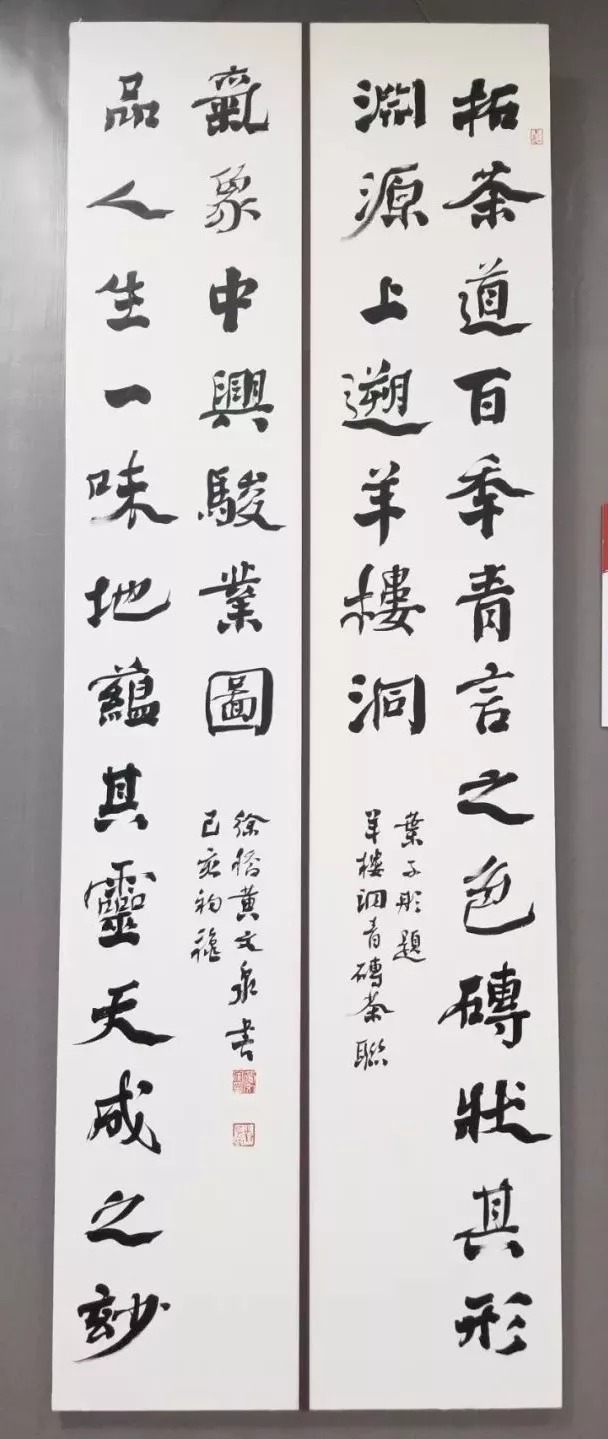 拓茶道百秊青言之色磚狀其形
淵源上遡羊樓洞
葉子彤題
羊樓洞青磚茶聯
品人生一味地蘊其靈天成之玅
氣象中興駿業圖
黄文泉書
己亥初穐